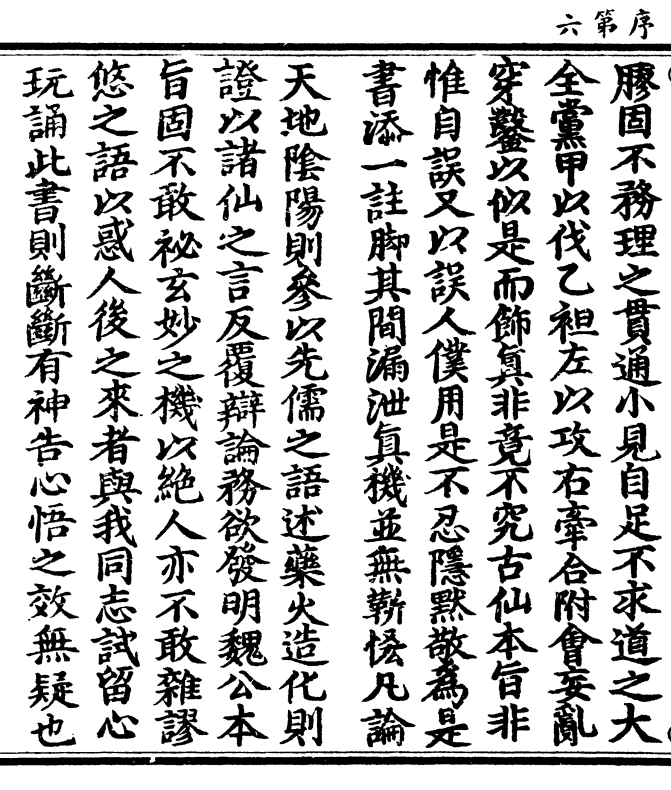 序第六
膠固不務理之貫通小見自足不求道之大
全黨甲以伐乙袒左以攻右牽合附會妄亂
穿鑿以似是而飾真非竟不究古仙本旨非
惟自誤又以誤人僕用是不忍隱默敬為是
書添一註脚其間漏泄真機並無靳悋凡論
天地陰陽則參以先儒之語述藥火造化則
證以諸仙之言反覆辯論務欲發明魏公本
旨固不敢祕玄妙之機以絶人亦不敢雜謬
悠之語以惑人後之來者與我同志試留心
玩誦此書則斷斷有神告心悟之效無疑也